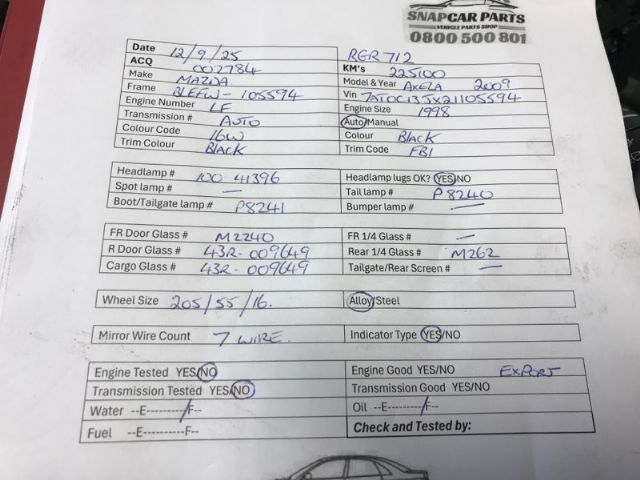 SNAPCAR PARTS
VEHICLE PARTS SHOP
0800 500 801
Date 12/9/25 RGR712
ACQ 002784 KM's 225100
Make MAZDA Model & Year AXELA 2009
Frame BLEFW-105594 Vin 7AT0C13JX21105594
Engine Number LF Engine Size 1998
Transmission # AUTO Auto/Manual
Colour Code 16W Colour BLACK
Trim Colour BLACK Trim Code FB1
Headlamp # 100 41396 Headlamp lugs OK? YES/NO
Spot lamp # — Tail lamp # P8240
Boot/Tailgate lamp # P8241 Bumper lamp # —
FR Door Glass # M2240 FR 1/4 Glass # —
R Door Glass # 43R-009649 Rear 1/4 Glass # M262
Cargo Glass # 43R-009649 Tailgate/Rear Screen # —
Wheel Size 205/55/16. Alloy/Steel
Mirror Wire Count 7 WIRE. Indicator Type YES/NO
Engine Tested YES/NO Engine Good YES/NO EXPORT
Transmission Tested YES/NO Transmission Good YES/NO
Water --E---------/F-- Oil --E---------/F--
Fuel --E----------F-- Check and Tested by: